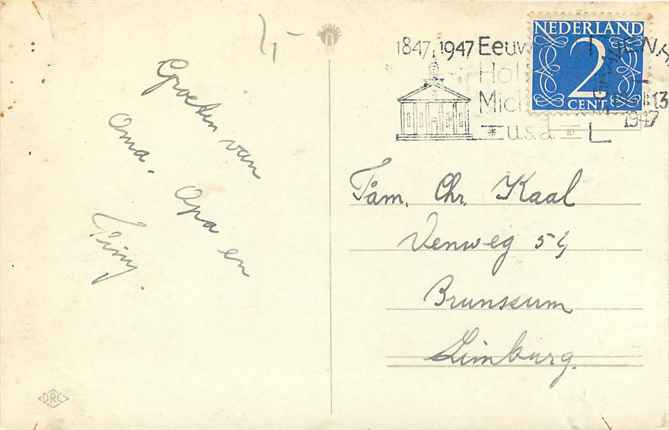 1,-
Groeten van
Oma. Opa en
Tiny.
1847 1947 Eeuw
Hol
Mich
u.s.a
13
1947
NEDERLAND
2
CENT
Fam. Chr. Kaal
Venweg 54
Brunssum
Limburg.
DRC